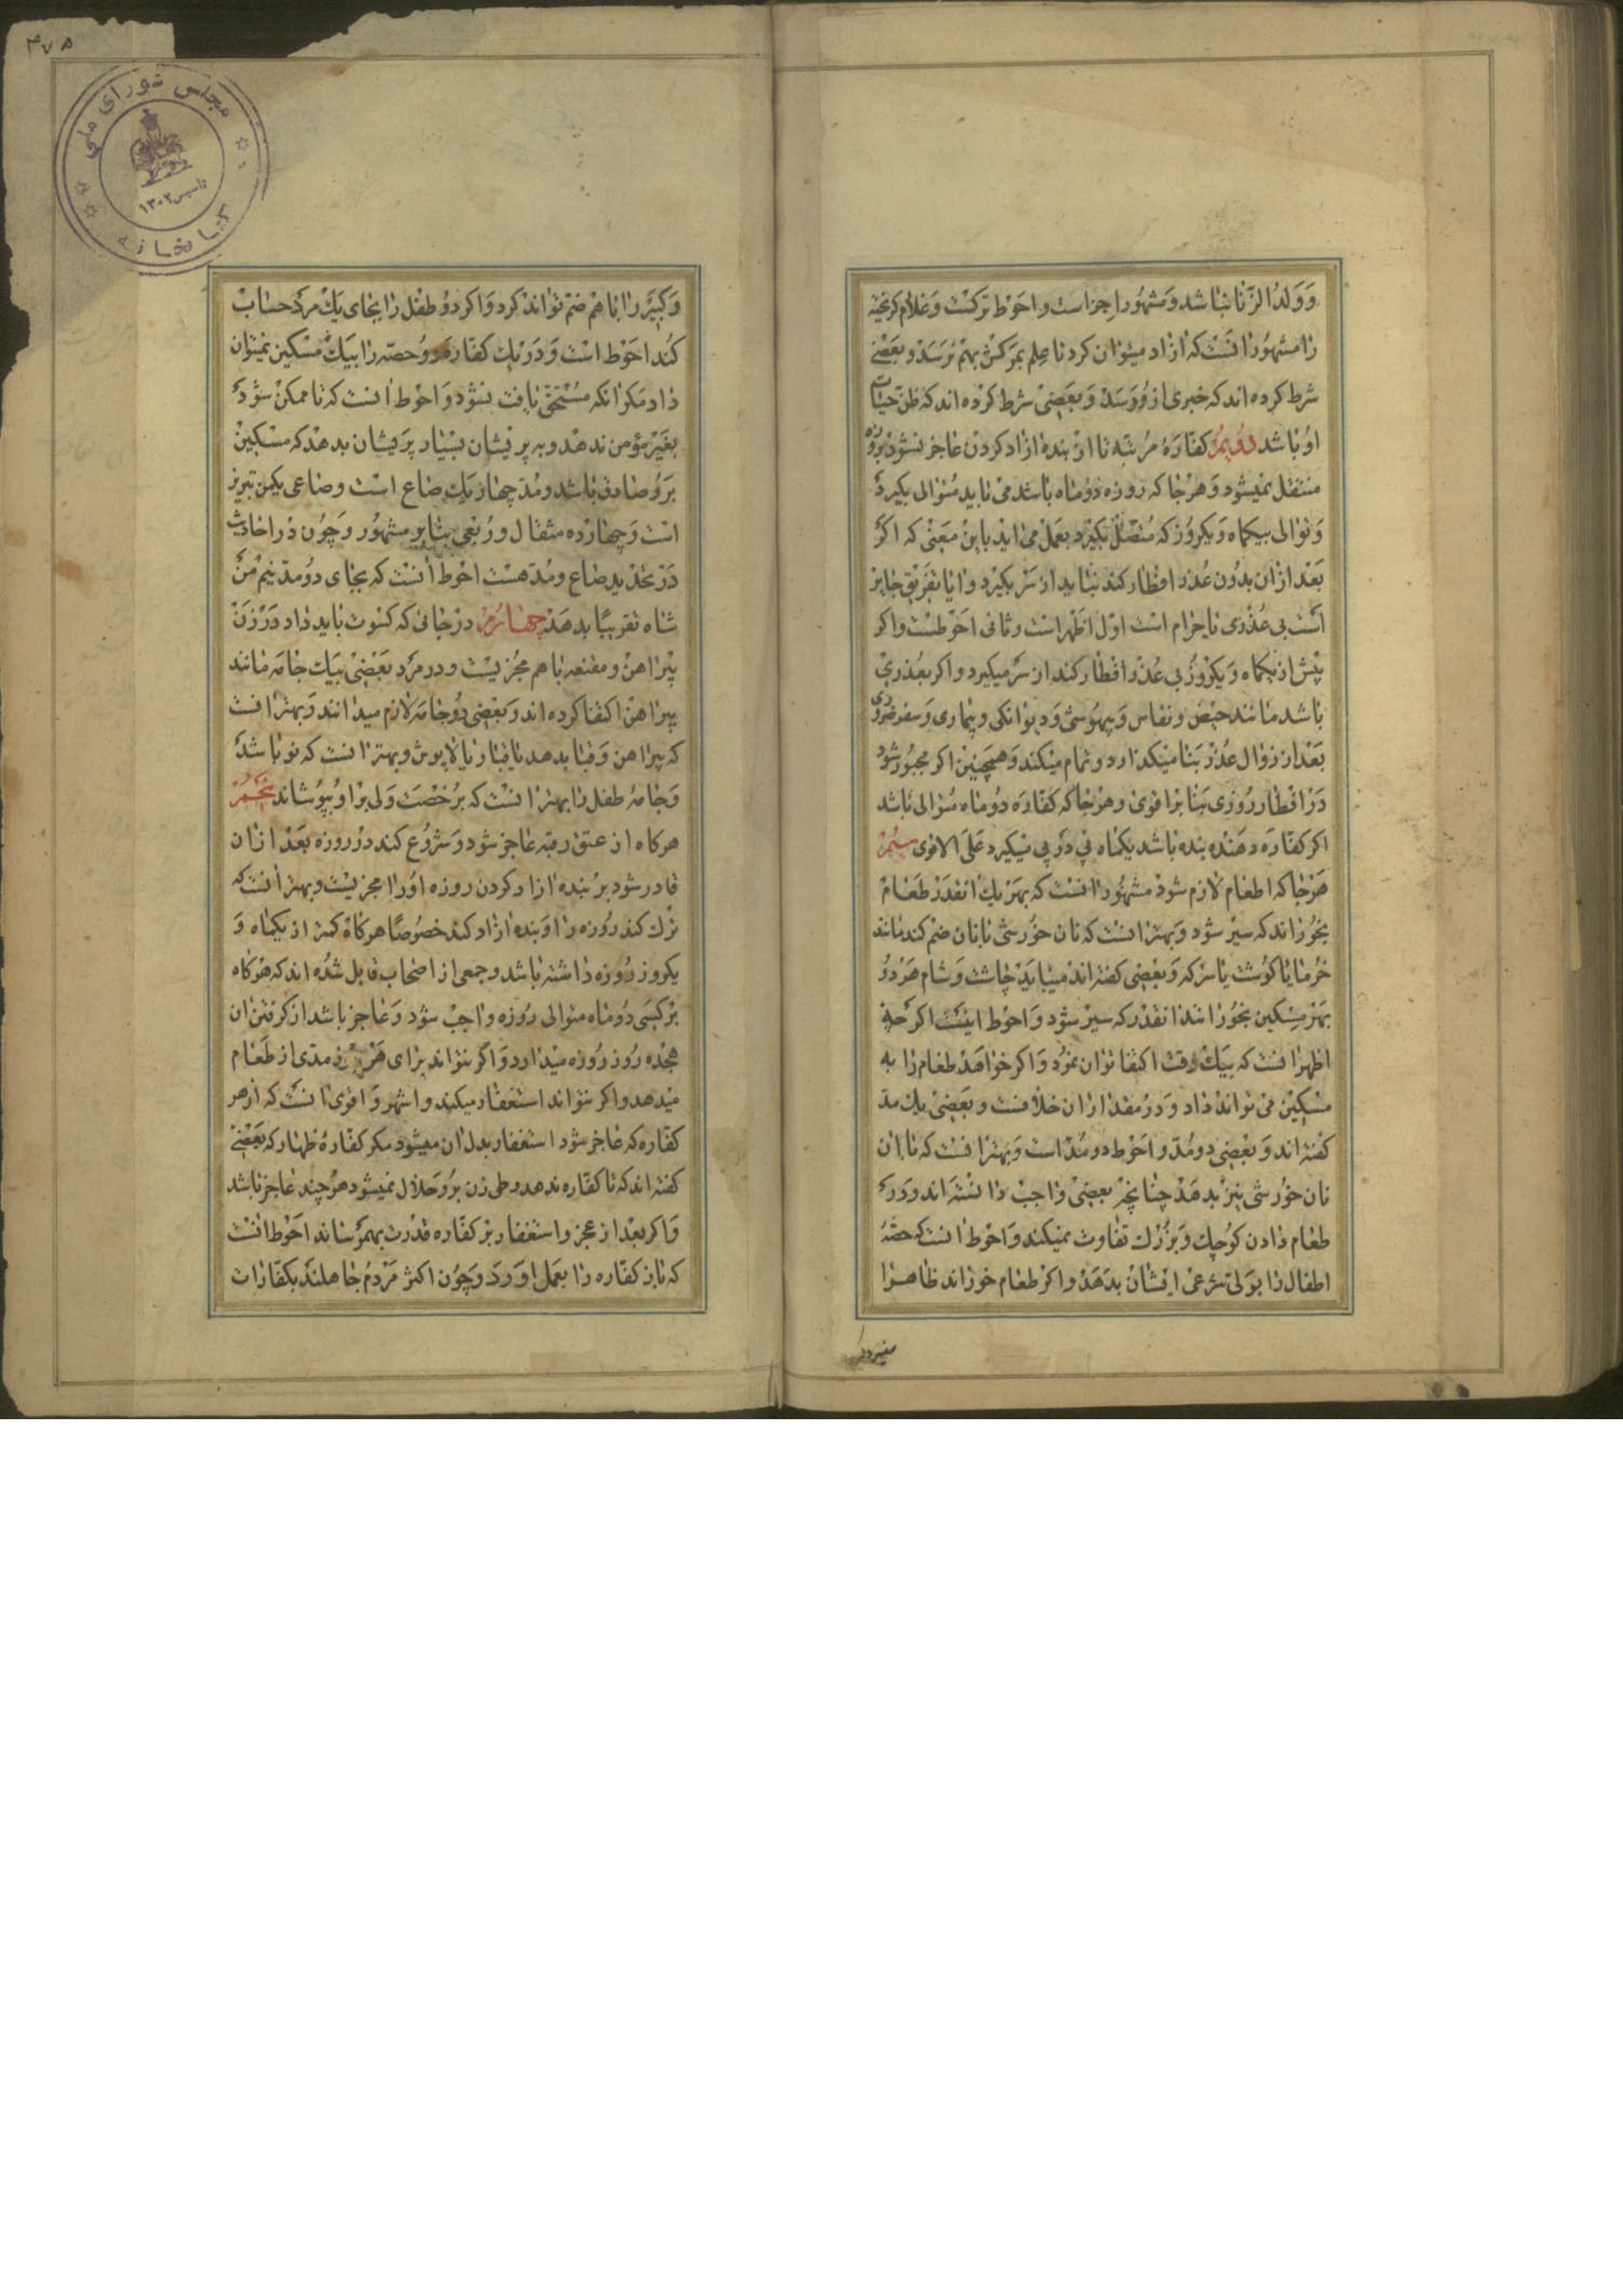 وَوَلدُ الزّنا نباشد و مشهور اجزاست و احوط ترکست و غلام کریخته
را مشهور انست که ازاد میتوان کرد تا علم بمرکش بهم نرسد و بعضی
شرط کرده اند که خبری ازو برسد و بعضی شرط کرده اند که ظن حیات
او باشد دویم کفاره مرتبه تا از بنده ازاد کردن عاجز نشود بروزه
منتقل نمیشود و هرجا که روزه دو ماه باشد می باید متوالی بکیرد
و توالی بیکماه و یکروز که متصل بکیرد بعمل می اید باین معنی که اکر
بعد ازان بدون عذر افطار کند نباید از سر بکیرد و ایا تفریق جایز
است بی عذری یا حرام است اول اظهر است و ثانی احوطست و اکر
پیش از یکماه و یکروز بی عذر افطار کند از سر میکیرد و اکر بعذری
باشد مانند حیض و نفاس و بیهوشی و دیوانکی و بیماری و سفر ضروری
بعد از زوال عذر بنا میکذارد و تمام میکند و همچنین اکر مجبور شود
در افطار روزی بنا بر اقوی و هرجا که کفاره دو ماه متوالی باشد
اکر کفاره دهنده بنده باشد یکماه پی در پی میکیرد علی الاقوی سیم
هرجا که اطعام لازم شود مشهور انست که بهر یک انقدر طعام
بخوراند که سیر شود و بهتر انست که نان خورشی با نان ضم کند مانند
خرما یا کوشت یا سرکه و بعضی کفته اند میباید چاشت و شام هر دو
بهر مسکین بخورانند انقدر که سیر شود و احوط اینست اکر چه
اظهر انست که بیک وقت اکتفا توان نمود و اکر خواهد طعام را به
مسکین می تواند داد و در مقدار ان خلافست و بعضی یک مد
کفته اند و بعضی دو مد و احوط دو مد است و بهتر انست که با ان
نان خورشی نیز بدهد چنانچه بعضی واجب دانسته اند و در
طعام دادن کوچک و بزرک تفاوت نمیکند و احوط انست که حصّه
اطفال را بولی شرعی ایشان بدهد و اکر طعام خوراند ظاهرا
و کبیر را با هم ضم تواند کرد و اکر دو طفل را بجای یک مرد حساب
کند احوط است و در یک کفاره دو حصه را بیک مسکین نمیتوان
داد مکر انکه مستحق یافت نشود و احوط انست که تا ممکن شود
بغیر مؤمن ندهد و به پریشان بسیار پریشان بدهد که مسکین
برو صادق باشد و مد چهار یک صاع است و صاعی یکمن تبریز
است و چهارده مثقال و ربعی بنابر مشهور و چون در احادیث
در تحدید صاع و مد هست احوط انست که بجای دو مد نیم من
شاه تقریبا بدهد چهارم در جائی که کسوت باید داد در زن
پیراهن و مقنعه با هم مجزیست و در مرد بعضی بیک جامه مانند
پیراهن اکتفا کرده اند و بعضی دو جامه لازم میدانند و بهتر انست
که پیراهن و قبا بدهد یا قبا و بالاپوش و بهتر انست که نو باشد
و جامه طفل را بهتر انست که برخصت ولی بر او بپوشاند پنجم
هرکاه از عتق رقبه عاجز شود و شروع کند در روزه بعد ازان
قادر شود بر بنده ازاد کردن روزه او را مجزیست و بهتر انست که
ترک کند روزه را و بنده ازاد کند خصوصا هرکاه کمتر از یکماه و
یکروز روزه داشته باشد و جمعی از اصحاب قایل شده اند که هرکاه
بر کسی دو ماه متوالی روزه واجب شود و عاجز باشد از کرفتن ان
هجده روز روزه میدارد و اکر نتواند برای هر روزی مدی از طعام
میدهد و اکر نتواند استغفار میکند و اشهر و اقوی انست که از هر
کفاره که عاجز شود استغفار بدل ان میشود مکر کفاره ظهار که بعضی
کفته اند که تا کفاره ندهد وطی زن برو حلال نمیشود هرچند عاجز باشد
و اکر بعد از عجز و استغفار بر کفاره قدرت بهم رساند احوط انست
که باز کفاره را بعمل اورد و چون اکثر مردم جاهلند بکفارات
۴۷۵
مجلس شورای ملی
کتابخانه
تاسیس ۱۳۰۲